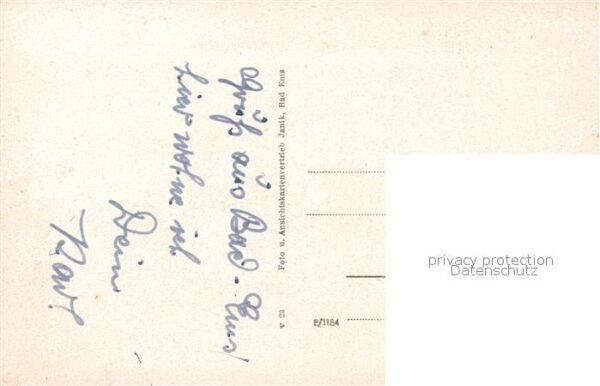 Gruß aus Bad-Ems
hier wohne ich
Dein
Karl
Foto u. Ansichtskartenvertrieb Janik, Bad Ems
v 28
E/1184
privacy protection
Datenschutz